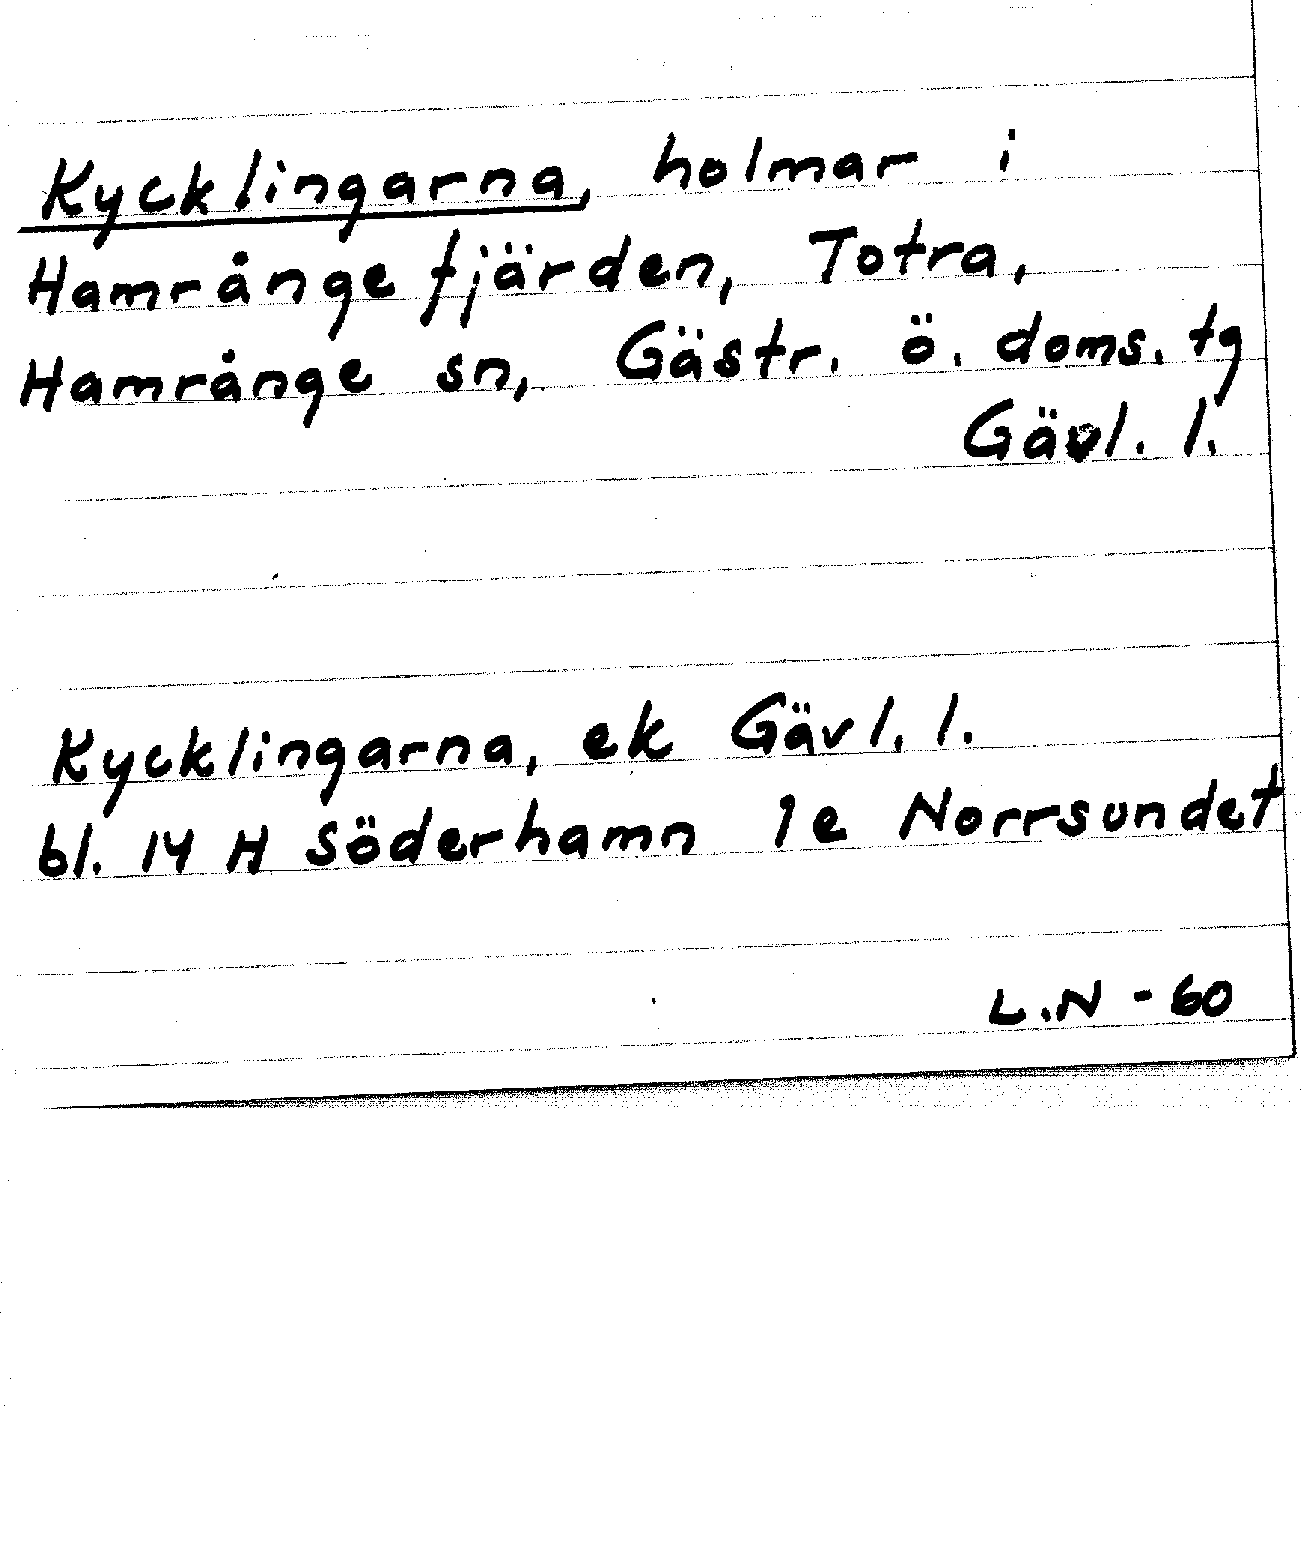 Kycklingarna, holmar i
Hamrångefjärden, Totra,
Hamrånge sn, Gästr. ö. doms. tg
Gävl. l.
Kycklingarna, ek Gävl. l.
bl. 14 H Söderhamn 1e Norrsundet
L.N - 60